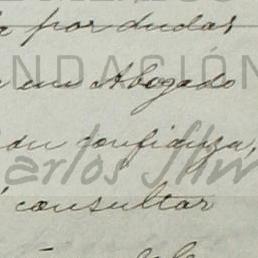 por dudas
FUNDACIÓN
un Abogado
su confianza,
Carlos Slim
consultar